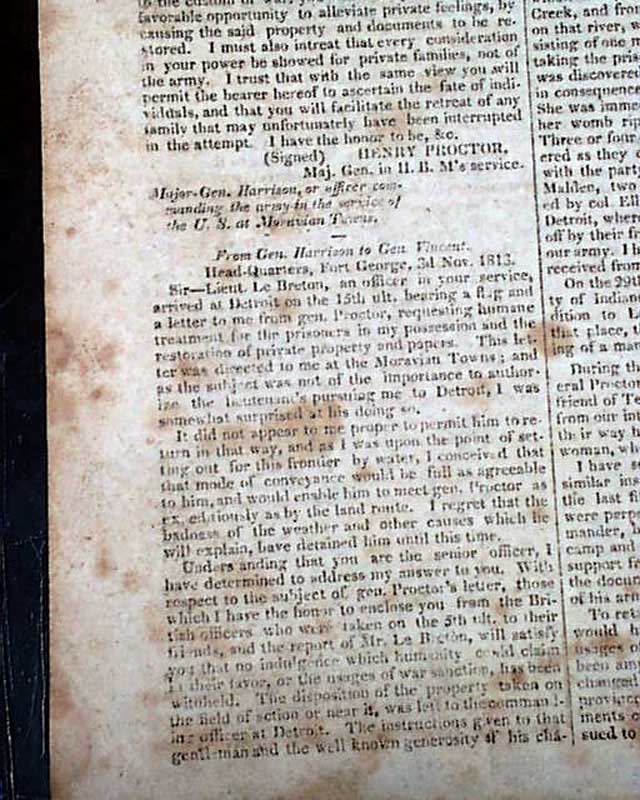 to the custom of war, you
favorable opportunity to alleviate private feelings, by
causing the said property and documents to be re-
stored. I must also intreat that every consideration
in your power be showed for private families, not of
the army. I trust that with the same view you will
permit the bearer hereof to ascertain the fate of indi-
viduals, and that you will facilitate the retreat of any
family that may unfortunately have been interrupted
in the attempt. I have the honor to be, &c.
(Signed) HENRY PROCTOR,
Maj. Gen. in H. B. M's service.
Major-Gen. Harrison, or officer com-
manding the army in the service of
the U. S. at Moravian Towns.
From Gen. Harrison to Gen Vincent.
Head-Quarters, Fort George, 3d Nov. 1813.
Sir—Lieut. Le Breton, an officer in your service,
arrived at Detroit on the 15th ult. bearing a flag and
a letter to me from gen. Proctor, requesting humane
treatment for the prisoners in my possession and the
restoration of private property and papers. This let-
ter was directed to me at the Moravian Towns; and
as the subject was not of the importance to author-
ize the lieutenant's pursuing me to Detroit, I was
somewhat surprised at his doing so.
It did not appear to me proper to permit him to re-
turn in that way, and as I was upon the point of set-
ting out for this frontier by water, I conceived that
that mode of conveyance would be full as agreeable
to him, and would enable him to meet gen. Proctor as
ex, editiously as by the land route. I regret that the
badness of the weather and other causes which he
will explain, have detained him until this time.
Unders anding that you are the senior officer, I
have determined to address my answer to you. With
respect to the subject of gen. Proctor's letter, those
which I have the honor to enclose you from the Bri-
tish officers who were taken on the 5th ult. to their
friends, and the report of Mr. Le Breton, will satisfy
you that no indulgence which humanity could claim
in their favor, or the usages of war sanction, has been
witheld. The disposition of the property taken on
the field of action or near it, was left to the command-
ing officer at Detroit. The instructions given to that
gentleman and the well known generosity of his cha-
Creek, and fro
on that river,
sisting of one m
taking the pris
was discovered
in consequence
She was imme
her womb rip
Three or four
ered as they
with the party
Malden, two
ed by col. Ell
Detroit, where
off by their fr
our army. I h
received from
On the 29t
ty of Indian
dition to L
that place, t
ing of a man
During th
eral Procto
friend of Te
from our im
their way h
woman, wh
I have s
similar ins
the last f
were perp
mander, h
camp and
support fr
the docum
of his arm
To re
would h
usages o
been am
changed
provinc
ments c
sued to